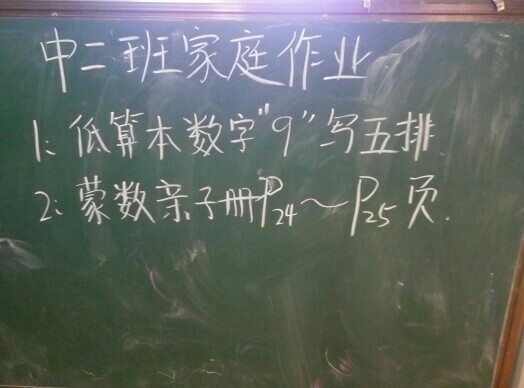 中二班家庭作业
1:低算本数字"9"写五排
2:蒙数亲子册P24~P25页.